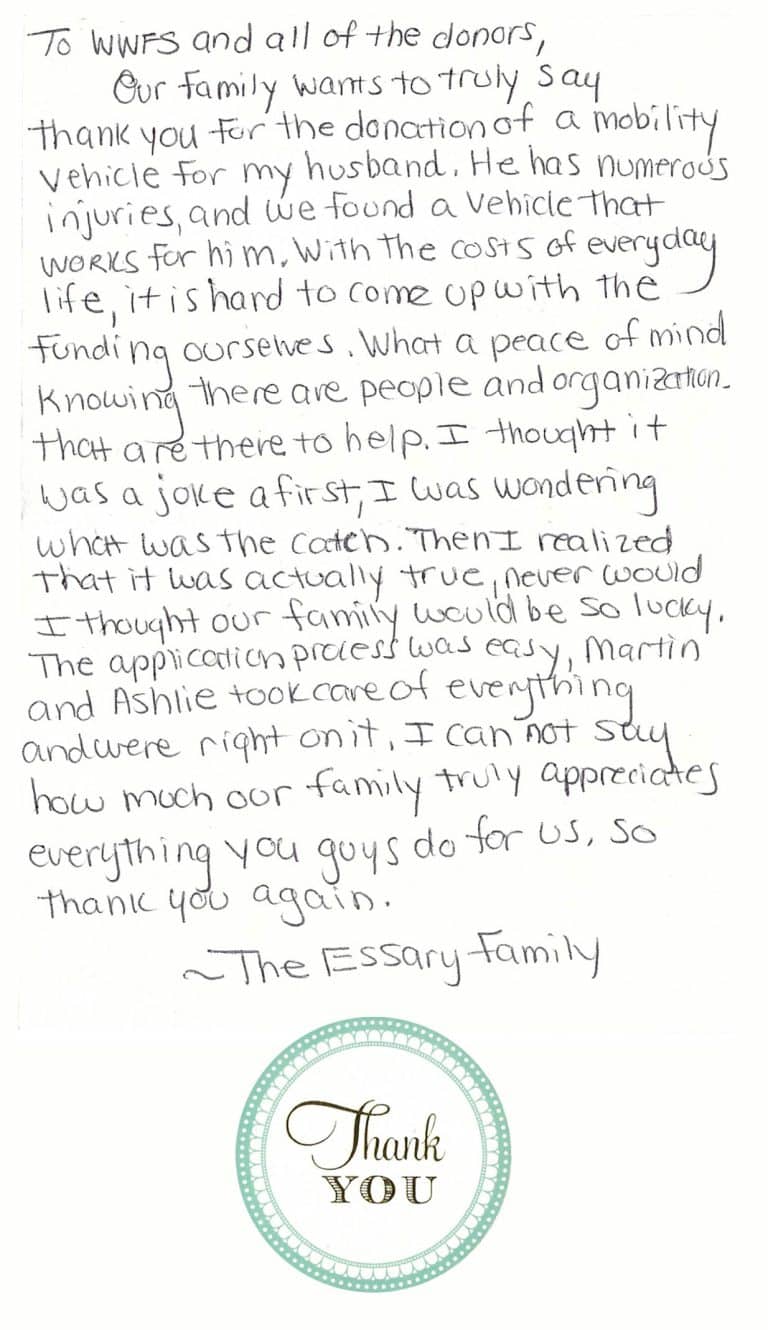 To WWFS and all of the donors,
Our family wants to truly say
thank you for the donation of a mobility
vehicle for my husband. He has numerous
injuries, and we found a vehicle that
works for him. With the costs of everyday
life, it is hard to come up with the
funding ourselves. What a peace of mind
Knowing there are people and organization
that are there to help. I thought it
was a joke a first, I was wondering
what was the catch. Then I realized
that it was actually true, never would
I thought our family would be so lucky.
The application process was easy, Martin
and Ashlie took care of everything
and were right on it. I can not say
how much our family truly appreciates
everything you guys do for us, so
thank you again.
~The Essary family
Thank
YOU